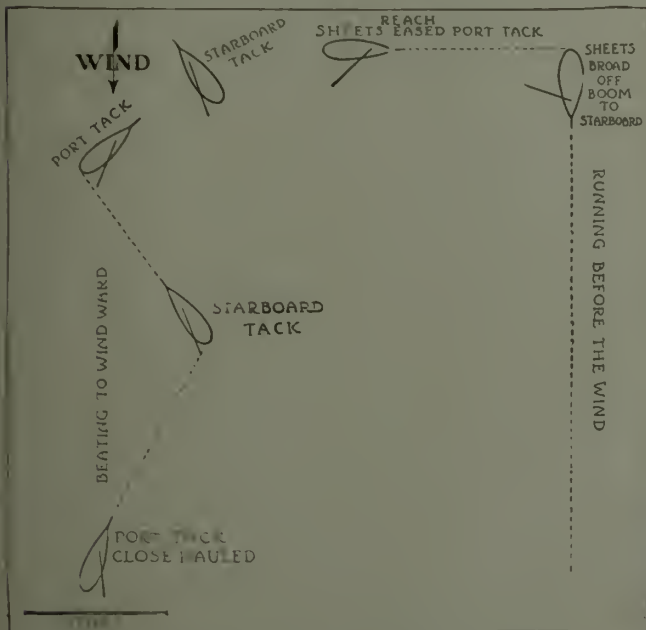 WIND
STARBOARD
TACK
REACH
SHEETS EASED PORT TACK
SHEETS
BROAD
OFF
BOOM
TO
STARBOARD
PORT TACK
RUNNING BEFORE THE WIND
BEATING TO WIND WARD
STARBOARD
TACK
PORT TACK
CLOSE HAULED